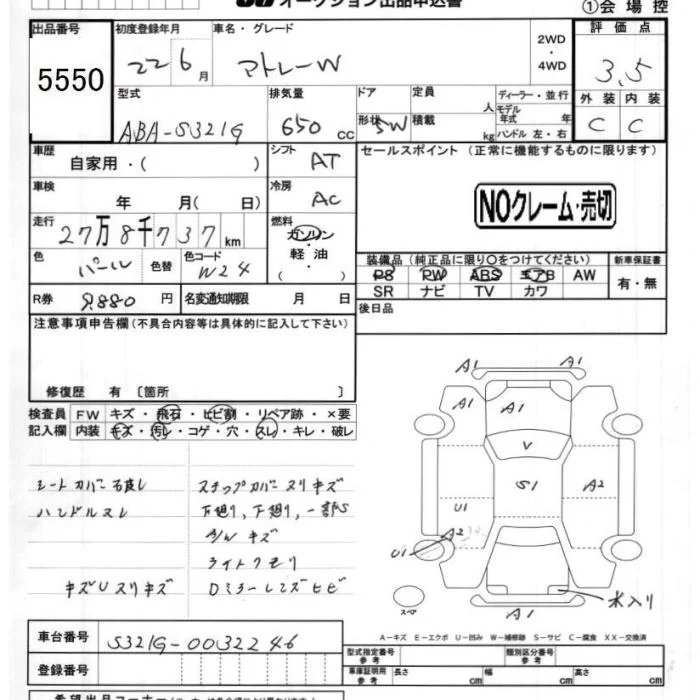 オークション出品申込書
①会場控
出品番号 初度登録年月 車名・グレード 評価点
5550 22 6月 アトレーW 2WD・4WD 3.5
型式 排気量 ドア 定員 ディーラー・並行 外装 内装
ABA-S321G 650cc 形状 5W 積載 人 kg モデル年式 年 ハンドル 左・右 C C
車歴 自家用・( ) シフト AT セールスポイント(正常に機能するものに限ります)
車検 年 月( 日) 冷房 AC NOクレーム・売切
走行 27万8千737km 燃料 ガソリン・軽油・( )
色 パール 色替 色コード W24 装備品(純正品に限り○をつけてください) 新車保証書
PS PW ABS エアB AW 有・無
SR ナビ TV カワ
R券 9,880円 名変通知期限 月 日 後日品
注意事項申告欄(不具合内容等は具体的に記入して下さい)
修復歴 有〔箇所 〕
検査員 FW キズ・飛石・ヒビ割・リペア跡・×要
記入欄 内装 キズ・汚レ・コゲ・穴・スレ・キレ・破レ
シートカバー ステップカバースリキズ
ハンドルスレ 下廻り、下廻り、一部S
A/W キズ
ライトクモリ
キズUスリキズ Dミラーレンズヒビ
A1 A1
A1 A1
V
S1 A2
U1
A2
U1
スペア 水入り
A1
A-キズ E-エクボ U-凹み W-補修跡 S-サビ C-腐食 XX-交換済
車台番号 S321G-0032246
登録番号
型式指定番号 参考 類別区分番号 参考
車庫証明用 参考 長さ cm 幅 cm 高さ cm
希望出品コーナー